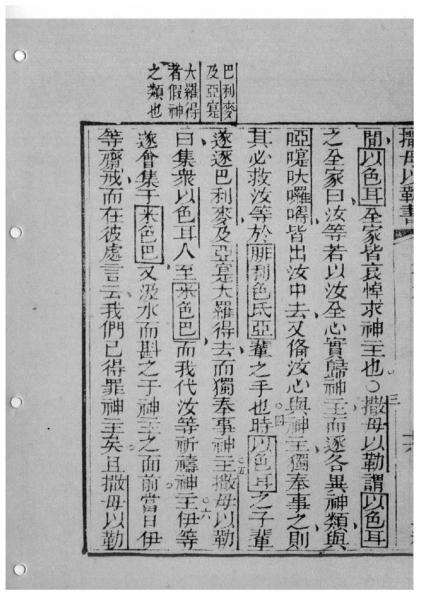 巴利麥
及亞寔
大羅得
者假神
之類也
撒母以勒書
間以色耳全家皆哀悼求神主也○撒母以勒謂以色耳
三
之全家曰汝等若以汝全心實歸神主而逐各異神類與
啞嚏呔囉嘚皆出汝中去又俻汝心與神主獨奉事之則
四
其必救汝等於腓利色氏亞輩之手也時以色耳之子輩
五
遂逐巴利麥及亞寔大羅得去而獨奉事神主撒母以勒
六
曰集衆以色耳人至米色巴而我代汝等祈禱神主伊等
遂會集于米色巴又汲水而斟之于神主之面前當日伊
等齋戒而在彼處言云我們已得罪神主矣且撒母以勒